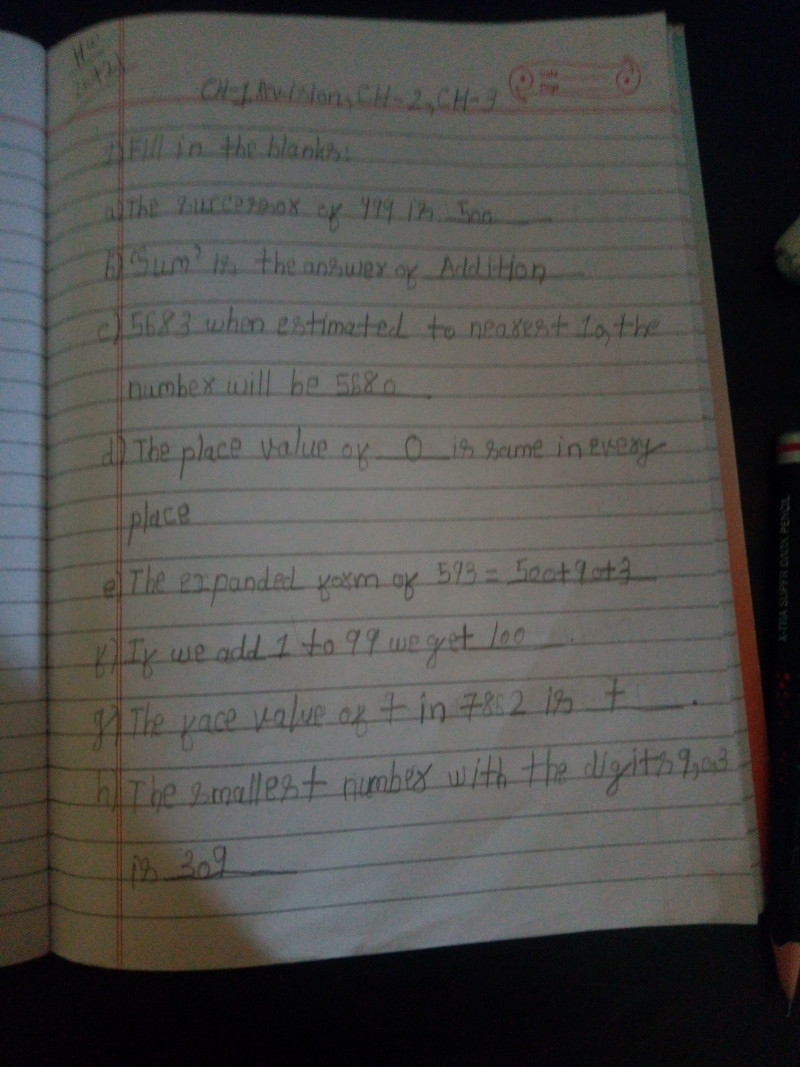 HW
CH-1 Revision, CH-2, CH-3
Date
Page
1) Fill in the blanks:
a) The successor of 499 is 500
b) 'Sum' is the answer of Addition
c) 5683 when estimated to nearest 10, the
number will be 5680.
d) The place value of 0 is same in every
place
e) The expanded form of 593 = 500+90+3
f) If we add 1 to 99 we get 100.
g) The face value of 7 in 7862 is 7.
h) The smallest number with the digits 9,0,3
is 309
X-TRA SUPER DARK PENCIL